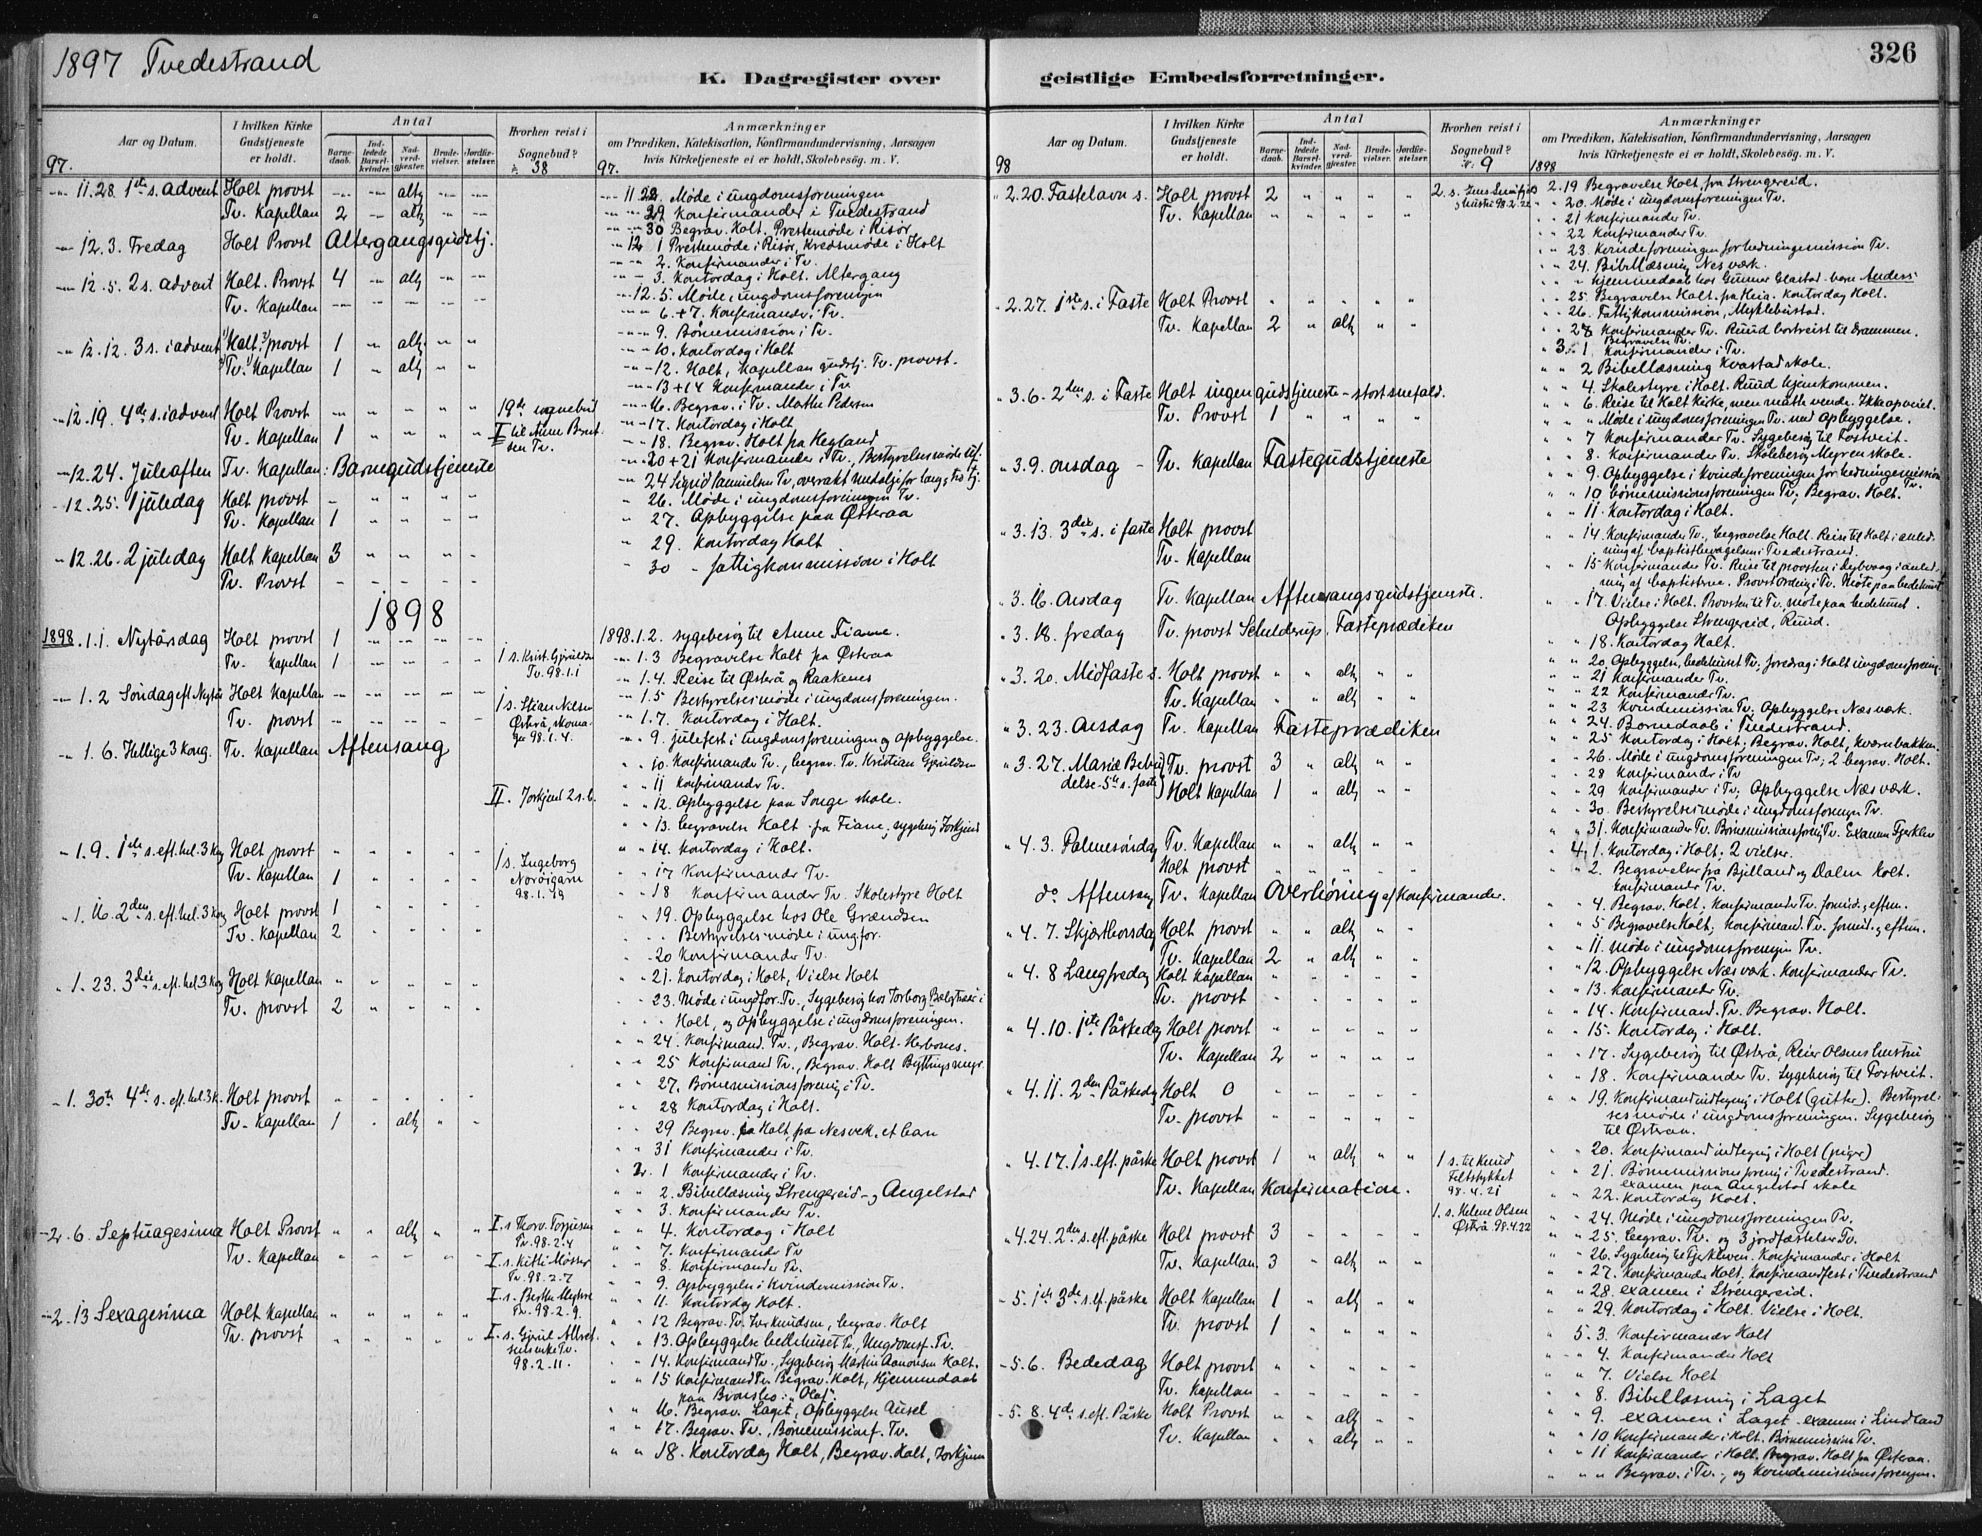 1897 Tvedestrand
K. Dagregister over
Aar og Datum.
I hvilken Kirke Gudstjeneste er holdt.
Antal
Barnedaab.
Indledede Barselkvinder.
Nadverdgjester.
Brudevielser.
Jordfæstelser.
Hvorhen reist i Sognebud?
38
Anmærkninger
om Prædiken, Katekisation, Konfirmandundervisning, Aarsagen
hvis Kirketjeneste ei er holdt, Skolebesøg. m. V.
97.
97.
11.28. 1ste s. Advent Holt provst altg
Tv. Kapellan 2 altg
12.3. Fredag Holt Provst Altergangsgudstj.
12.5. 2 s. Advent Holt. Provst 4 altg
Tv. Kapellan
12.12. 3 s. i advent Holt provst 1 altg
Tv. Kapellan 1 altg
12.19. 4de s. i advent Holt Provst
Tv. Kapellan 1
19de sognebud
12.24. Juleaften Tv. Kapellan: Barnegudstjeneste
12.25. 1 juledag Holt provst
Tv. Kapellan 1
12.26. 2 juledag Holt Kapellan 3
Tv. Provst
1898
1898. 1.1. Nytårsdag Holt provst 1
Tv. Kapellan 1
1.2 Søndag eft. Nytår Holt Kapellan
Tv. provst
1.6. Hellige 3 kong. Tv. Kapellan Aftensang
1.9. 1ste s. eft. hel. 3 kong Holt provst
Tv. Kapellan 1
1.16. 2den s. eft. hel. 3 kong Holt provst 1
Tv. Kapellan 2
1.23. 3die s. eft. hel. 3 kong Holt Kapellan
Tv. provst 2
1.30te 4de s. eft. hel. 3 k. Holt provst
Tv. Kapellan 1 altg
2.6. Septuagesima Holt Provst altg
Tv. Kapellan
2.13 Sexagesima Holt Kapellan
Tv. provst
1 s. Ingeborg
98.1.19
98.2.11.
11.28. Møde i ungdomsforeningen
29 Konfirmander i Tvedestrand
30 Begrav. Holt. Prestemøde i Risør
12 1 Prestemøde i Risør, Kredsmøde i Holt
2. Konfirmander i Tv.
3. Kontordag i Holt. Altergang
12.5. Møde i ungdomsforeningen
6.+7. Konfirmandr. Tv.
9. Børnemission i Tv.
10. Kontordag i Holt
12. Holt, Kapellan gudstj. Tv. provst.
13+14 Konfirmander i Tv.
16. Begrav. i Tv. Marthe Pedersen
17. Kontordag i Holt
18. Begrav. Holt fra Hegland
20+21 Konfirmander i Tv.
26. Møde i ungdomsforeningen Tv.
27. Opbyggelse paa Østeraa
29. Kontordag Holt
30 fattigkommission i Holt
1898.1.2. sygebesøg til Anne Fiane.
1.3 Begravelse Holt fra Østeraa
1.4. Reise til Østerå og Raakenes
1.5 Bestyrelsesmøde i ungdomsforeningen.
1.7. Kontordag i Holt.
9. julefest i ungdomsforeningen og opbyggelse.
10. Konfirmander Tv., begrav. Tv. Kristian Gjeruldsen
11 Konfirmander Tv.
12. Opbyggelse paa Songe skole.
13. begravelse Holt fra Fiane, sygebesøg
14. Kontordag i Holt.
17 Konfirmander Tv.
18 Konfirmander Tv. Skolestyre Holt
19. Opbyggelse hos Ole Grændsen
Bestyrelsesmøde i ung.for.
20 Konfirmander Tv.
21. Kontordag i Holt, Vielse Holt
23. Møde i ungd.for. Tv., Sygebesøg hos Torborg
Holt, og opbyggelse i ungdomsforeningen.
24. Konfirmand. Tv., Begrav. Holt.
25 Konfirmand Tv., Begrav. Holt
27. Børnemissionsforening i Tv.
28 Kontordag i Holt.
29 Begrav. Holt, fra Nesverk, et barn
31 Konfirmander i Tv.
2. 1 Konfirmander i Tv.
2. Bibellæsning Strengereid og Angelstad
3. Konfirmander Tv.
4. Kontordag i Holt
7. Konfirmander Tv
8. Konfirmander Tv.
9. Opbyggelse i Kvindemission Tv.
11. Kontordag Holt.
12 Begrav. Tv. begrav. Holt
13. Opbyggelse bedehuset Tv., Ungdomsf. Tv.
14. Konfirmand Tv., Sygebesøg Martin Aanonsen Holt.
15 Konfirmand Tv. Begrav. Holt, Hjemmedaab
16. Begrav. Laget, Opbyggelse
17. Begrav. Tv., Børnemissionf. Tv.
18. Kontordag Holt, Begrav. Holt,
326
geistlige Embedsforretninger.
Aar og Datum.
I hvilken Kirke Gudstjeneste er holdt.
Antal
Barnedaab.
Indledede Barselkvinder.
Nadverdgjester.
Brudevielser.
Jordfæstelser.
Hvorhen reist i Sognebud?
9
Anmærkninger
om Prædiken, Katekisation, Konfirmandundervisning, Aarsagen
hvis Kirketjeneste ei er holdt, Skolebesøg. m. V.
98
1898
2.20. Fastelavn s. Holt provst 2
Tv. Kapellan
2.27. 1ste s. i Faste Holt Provst
Tv. Kapellan 2 altg
3.6. 2den s. i Faste Holt ingen gudstjeneste - stort snefald.
Tv. Provst 1
3.9. onsdag Tv. Kapellan Fastegudstjeneste
3.13. 3die s. i faste Holt provst
Tv. Kapellan
3.16. Onsdag Tv. Kapellan Aftensangsgudstjeneste.
3.18. fredag Tv. provst Schelderup. Fasteprædiken
3.20. Midfaste s. Holt provst altg
Tv. Kapellan altg
3.23. Onsdag Tv. Kapellan Fasteprædiken
3.27. Mariæ Bebudelse. 5te s. faste Tv. provst 3 altg
Holt Kapellan 1 altg
4.3. Palmesøndag Tv. Kapellan altg
Holt provst
do Aftensang Tv. Kapellan Overhøring af Konfirmander.
4.7. Skjærthorsdag Holt provst altg
Tv. Kapellan 2 altg
4.8 Langfredag Holt Kapellan
Tv. provst
4.10. 1ste Påskedag Holt provst
Tv. Kapellan 2
4.11. 2den Påskedag Holt 0
Tv. provst
4.17. 1 s. eft. påske Holt provst 1 altg
Tv. Kapellan Konfirmation.
4.24. 2den s. eft. påske Holt provst 3
Tv. Kapellan 3 altg
5.1ste 3die s. ef. påske Holt Kapellan 1 altg
Tv. provst 1
5.6. Bededag Holt provst
Tv. Kapellan
5.8. 4de s. eft. Påske Holt Provst altg
Tv. Kapellan altg
1 s. til Knud
98.4.21
1 s. Helene Olsen
Østerå 98.4.22
2.19 Begravelse Holt, fra Strengereid.
20. Møde i ungdomsforeningen Tv.
21 Konfirmander Tv.
22 Konfirmander Tv.
23. Kvindeforeningen for hedningemission Tv.
24. Bibellæsning Nesverk.
25. Begravelse Holt. fra Heia. Kontordag Holt.
26. Fattigkommission, Myklebustad.
28 Konfirmander Tv. Ruud bortreist til Drammen.
Begravelse Tv.
3. 1 Konfirmander i Tv.
2 Bibellæsning Kvastad skole.
4. Skolestyre i Holt. Ruud hjemkommen.
6. Reise til Holt Kirke, men måtte vende.
Møde i ungdomsforeningen Tv. med Opbyggelse.
7 Konfirmander Tv. Sygebesøg til Fostveit.
8. Konfirmander Tv. Skolebesøg Myren skole.
9. Opbyggelse i kvindeforeningen for hedningemission Tv.
10 børnemissionsforeningen Tv; Begrav. Holt.
11. Kontordag i Holt.
14. Konfirmander Tv., begravelse Holt. Reise til Holt i anledning af baptistbevægelsen i Tvedestrand.
15 Konfirmander Tv. Reise til provsten i Dybvaag i anledning af baptisterne.
17. Vielse i Holt. Provsten til Tv. møte paa bedehuset.
Opbyggelse Strengereid, Ruud.
18. Kontordag Holt.
20. Opbyggelse, bedehuset Tv; foredrag i Holt ungdomsforening.
21 Konfirmander Tv.
22 Konfirmander Tv.
23 Kvindemission Tv; Opbyggelse Næsverk.
24. Barnedaab i Tvedestrand.
25 Kontordag i Holt; Begrav. Holt, Kvernbakken.
26. Møde i ungdomsforeningen Tv; 2 begrav. Holt.
28 Konfirmandr i Tv
29 Konfirmander i Tv; Opbyggelse Næsverk.
30. Bestyrelsesmøde i ungdomsforeningen Tv.
31. Konfirmander Tv. Børnemissionsforening Tv. Examen Fjerkleiv
4. 1. Kontordag i Holt; 2 vielser.
2. Begravelser fra Bjelland og Dalen Holt.
Konfirmander Tv.
4. Begrav. Holt, Konfirmander Tv. formid. og efterm.
5 Begravelse Holt; Konfirmand. Tv. formid. og efterm.
11. Møde i ungdomsforeningen Tv.
12. Opbyggelse Næsverk. Konfirmander Tv.
13. Konfirmander Tv.
14. Konfirmand. Tv. Begrav. Holt.
15. Kontordag i Holt.
17. Sygebesøg til Østerå, Reier Olsens hustru
18. Konfirmander Tv. Sygebesøg til Fostveit.
19. Konfirmandindtegning i Holt (gutter). Bestyrelsesmøde i ungdomsforeningen. Sygebesøg
til Østeraa.
20. Konfirmandindtegning i Holt (piger)
21. Børnemissionsforening i Tvedestrand.
examen paa Angelstad skole
22. Kontordag Holt.
24. Møde i ungdomsforeningen Tv.
25. begrav. Tv. og 3 jordfæstelser Tv.
26. Sygebesøg til Fjerkleiven. Konfirmander i Holt
27. Konfirmander Holt. Konfirmandfest i Tvedestrand
28. examen i Strengereid.
29. Kontordag i Holt. Vielse i Holt.
5.3. Konfirmander Holt
4. Konfirmander Holt
7. Vielse Holt
8. Bibellæsning i Laget
9. examen i Laget. examen i Lindland
10 Konfirmander i Holt. Børnemission Tv.
11 Konfirmander i Holt. Begrav. Holt fra Østeraa.
Begrav. i Tv., og Kvindemissionsforeningen.